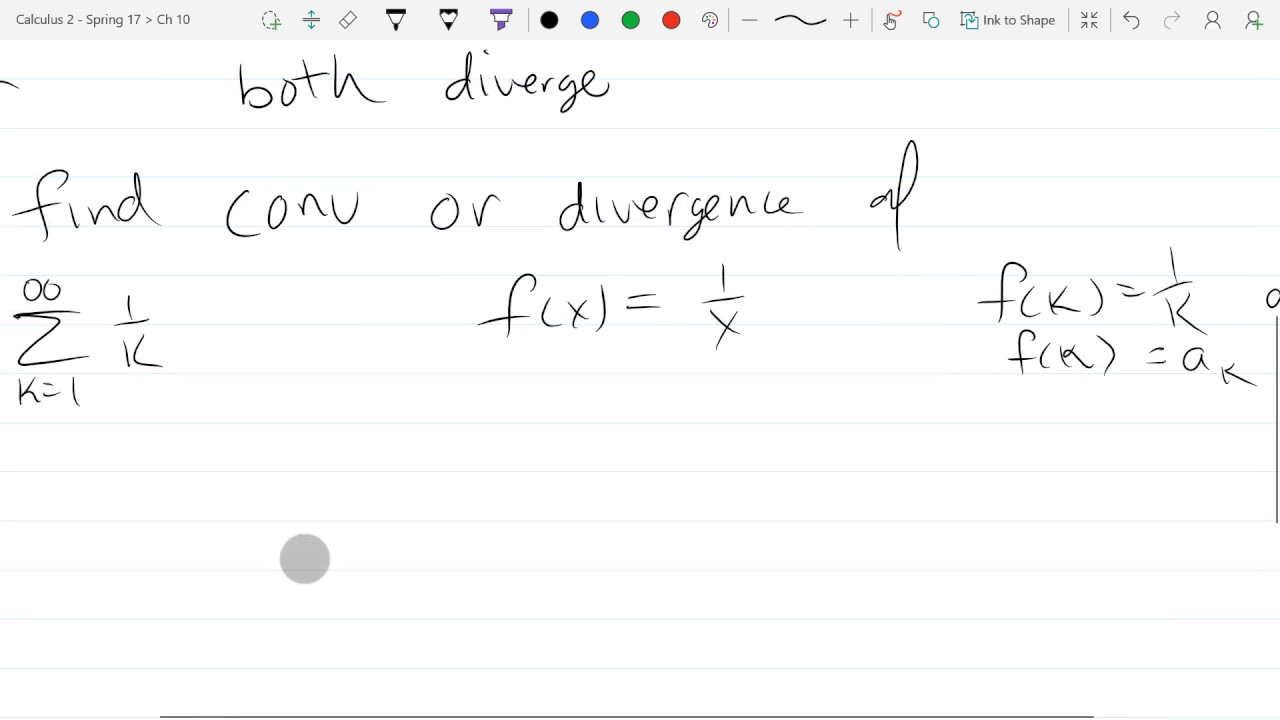 Calculus 2 - Spring 17 > Ch 10
Ink to Shape
both diverge
find conv or divergence of
∞
∑ 1/K
K=1
f(x) = 1/x
f(K) = 1/K
f(K) = a_K